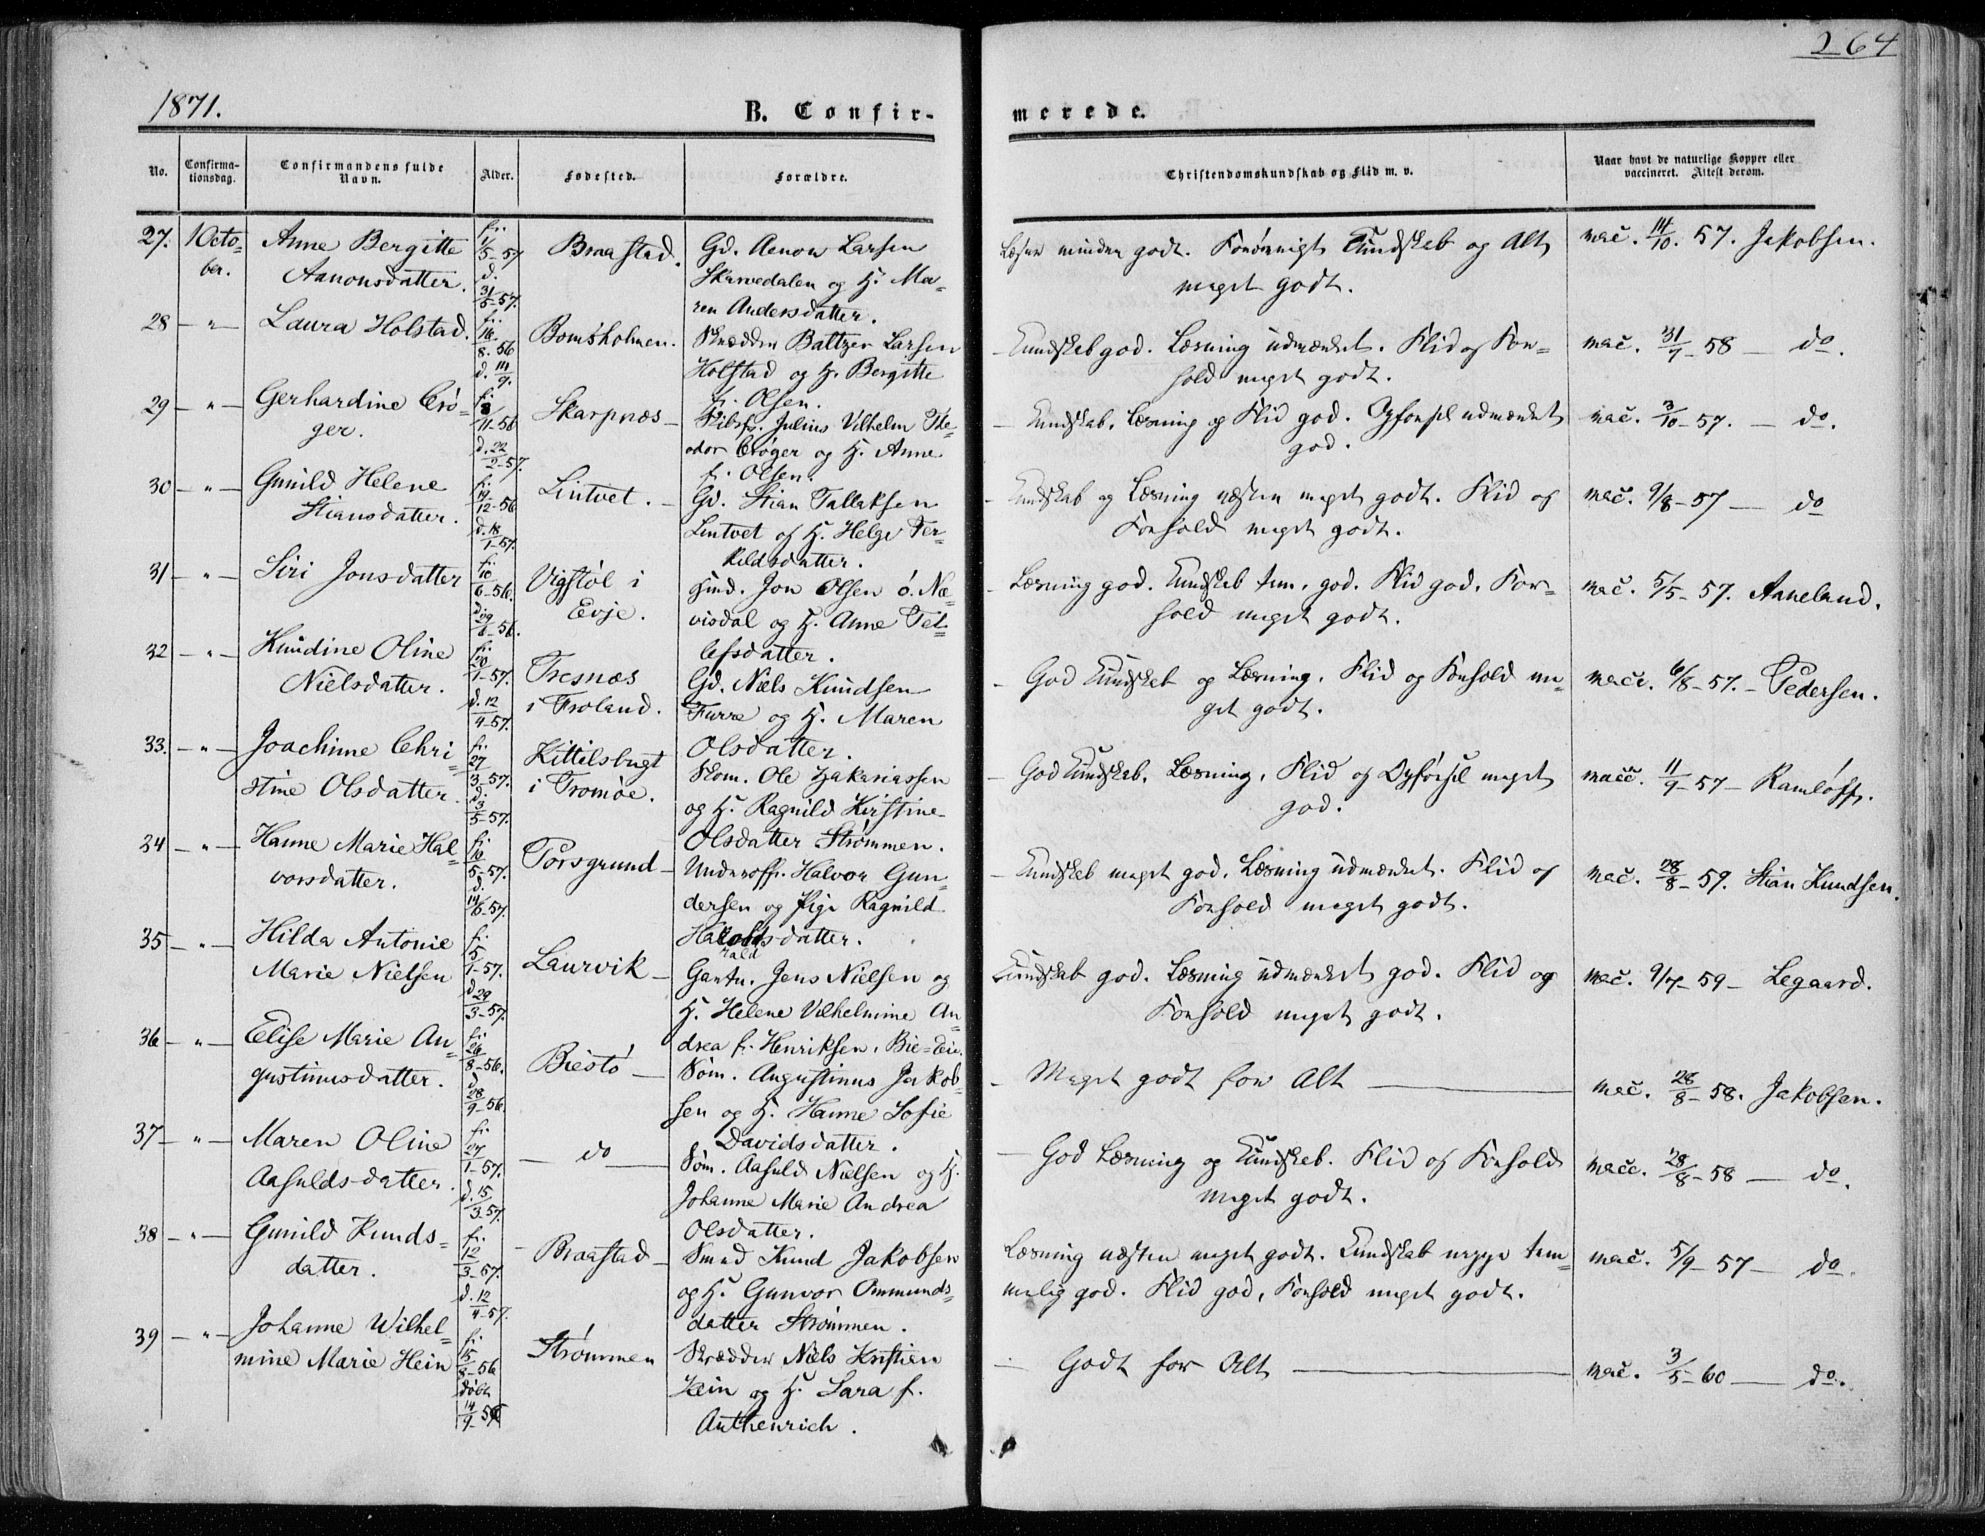 264
1871.
B. Confir-
merede.
No.
Confirma-
tionsdag.
Confirmandens fulde
Navn.
Alder.
Fødested.
Forældre.
Christendomskundskab og Flid m. v.
Naar havt de naturlige Kopper eller
vaccineret. Attest derom.
27. 1 Octo- Anne Bergitte f. 1/5-57 Braastad. Gd. Aenow Larsen
ber. Aanonsdatter. d. 31/5-57. Skarvedalen og H. Ma-
ren Andersdatter.
Læser mindre godt. Forøvrigt Kundskab og Alt
meget godt.
vac. 14/10. 57. Jakobsen.
28 - " - Laura Holstad. f. 16/8. 56 Bomsholmen. Skrædder Baltzer Larsen
d. 14/9. Holstad og H. Bergitte
f. Olsen.
Kundskab god. Læsning udmærket. Flid og For-
hold meget godt.
vac. 31/7-58 - do.
29 - " - Gerhardine Crö- f. 8/11-56 Skarpnæs - Skibsf. Julius Vilhelm The-
ger. d. 22/2-57. odor Cröger og H. Anne
f. Olsen.
- Kundskab, Læsning og Flid god. Opførsel udmærket
god.
vac. 3/10-57. - do.
30 - " - Gunild Helene f. 19/12-56 Lintvet. - Gd. Stian Tallaksen
Stiansdatter. d. 18/1-57. Lintvet og H. Helge Ter-
kildsdatter.
- Kundskab og Læsning næsten meget godt. Flid og
Forhold meget godt.
vac. 9/8-57 - do
31 - " - Siri Jonsdatter f. 10/6-56. Vigstøl i Hmd. Jon Olsen ö. Næ-
d. 29/6-56. Evje. visdal og H. Anne Tel-
lefsdatter.
- Læsning god. Kundskab tem. god. Flid god. For-
hold meget godt.
vac. 5/5-57. Aaneland.
32 - " - Knudine Oline f. 20/1-57. Fresnæs Gd. Niels Knudsen
Nielsdatter. d. 12/4-57. i Froland. Furre og H. Maren
Olsdatter.
- God Kundskab og Læsning. Flid og Forhold me-
get godt.
vacc. 6/8-57. - Pedersen.
33. - " - Joachime Chri- f. 27/3-57. Kittilsbugt Skom. Ole Zakariassen
stine Olsdatter. d. 3/5-57. i Tromøe. og H. Ragnild Kirstine
Olsdatter Strømmen.
- God Kundskab. Læsning, Flid og Opførsel meget
god.
vacc. 11/9-57 - Ramløff.
34 - " - Hanne Marie Hal- f. 10/5-57. Porsgrund - Underoff. Halvor Gun-
vorsdatter. d. 14/6-57. dersen og Pige Ragnild
Haraldsdatter.
- Kundskab meget god. Læsning udmærket. Flid og
Forhold meget godt.
vac. 28/8-59. Stian Knudsen.
35 - " - Hilda Antonie f. 5/1-57. Laurvik - Gartn. Jens Nielsen og
Marie Nielsen d. 29/3-57. H. Helene Vilhelmine An-
drea f. Henriksen. Bie=Eie.
Kundskab god. Læsning udmærket god. Flid og
Forhold meget godt.
vac. 9/7-59 - Legaard.
36 - " - Elise Marie Au- f. 26/8-56. Biestö - Søm. Augustinus Jakob-
gustinusdatter. d. 28/9-56. sen og H. Hanne Sofie
Davidsdatter.
- Meget godt for Alt -
vac. 28/8-58. Jakobsen.
37 - " - Maren Oline f. 27/1-57. - do - Søm. Aasuld Nielsen og H.
Aasulds-datter. d. 15/3-57. Johanne Marie Andrea
Olsdatter.
- God Læsning og Kundskab. Flid og Forhold
meget godt.
vacc. 28/8-58 - do.
38 - " - Gunild Knuds- f. 12/3-57. Braastad - Smed Knud Jakobsen
datter. d. 12/4-57. og H. Gunvor Ommunds-
datter Strømmen.
Læsning næsten meget godt. Kundskab neppe tem-
melig god. Flid god, Forhold meget godt.
vac. 5/9-57 - do.
39 - " - Johanne Wilhel- f. 15/8-56 Strømmen Skrædder Niels Kristien
mine Marie Hein døbt 14/9-56 Hein og H. Sara f.
Authenrich.
- Godt for Alt -
vac. 3/5-60 - do.